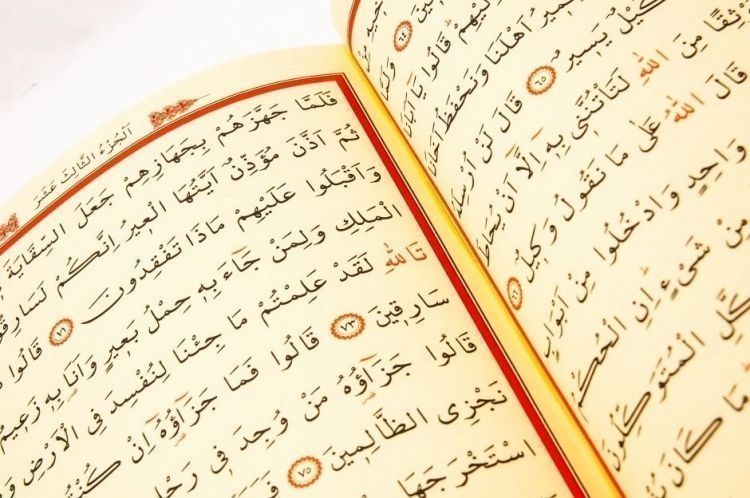 اَخ۪يهِ مِنْ
﴿٦٤﴾ وَلَمَّا
اِلَيْهِمْ قَالُوا يَٓا اَبَانَا
اَهْلَنَا وَنَحْفَظُ اَخَانَا
كَيْلٌ يَس۪يرٌ ﴿٦٥﴾ قَالَ لَنْ اُرْسِلَهُ
مِنَ اللّٰهِ لَتَأْتُنَّن۪ي بِه۪ٓ اِلَّٓا اَنْ يُحَاطَ
قَالَ اللّٰهُ عَلٰى مَا نَقُولُ وَك۪يلٌ ﴿٦٦﴾
وَاحِدٍ وَادْخُلُوا مِنْ اَبْوَابٍ
مِنْ شَيْءٍ اِنِ الْحُكْمُ
الْمُتَوَكِّلُونَ
مَا كَانَ
اَلْجُزْءُ الثَّالِثَ عَشَرَ
فَلَمَّا جَهَّزَهُمْ بِجَهَازِهِمْ جَعَلَ السِّقَايَةَ
ثُمَّ اَذَّنَ مُؤَذِّنٌ اَيَّتُهَا الْع۪يرُ اِنَّكُمْ لَسَارِقُونَ
وَاَقْبَلُوا عَلَيْهِمْ مَاذَا تَفْقِدُونَ ﴿٧١﴾ قَالُوا
الْمَلِكِ وَلِمَنْ جَٓاءَ بِه۪ حِمْلُ بَع۪يرٍ وَاَنَا بِه۪ زَع۪يمٌ
تَاللّٰهِ لَقَدْ عَلِمْتُمْ مَا جِئْنَا لِنُفْسِدَ فِي الْاَرْضِ وَ
سَارِق۪ينَ ﴿٧٣﴾ قَالُوا فَمَا جَزَٓاؤُ۬هُٓ اِنْ كُنْتُمْ
قَالُوا جَزَٓاؤُ۬هُ مَنْ وُجِدَ ف۪ي رَحْلِ
نَجْزِي الظَّالِم۪ينَ ﴿٧٥﴾
اسْتَخْرَجَهَا